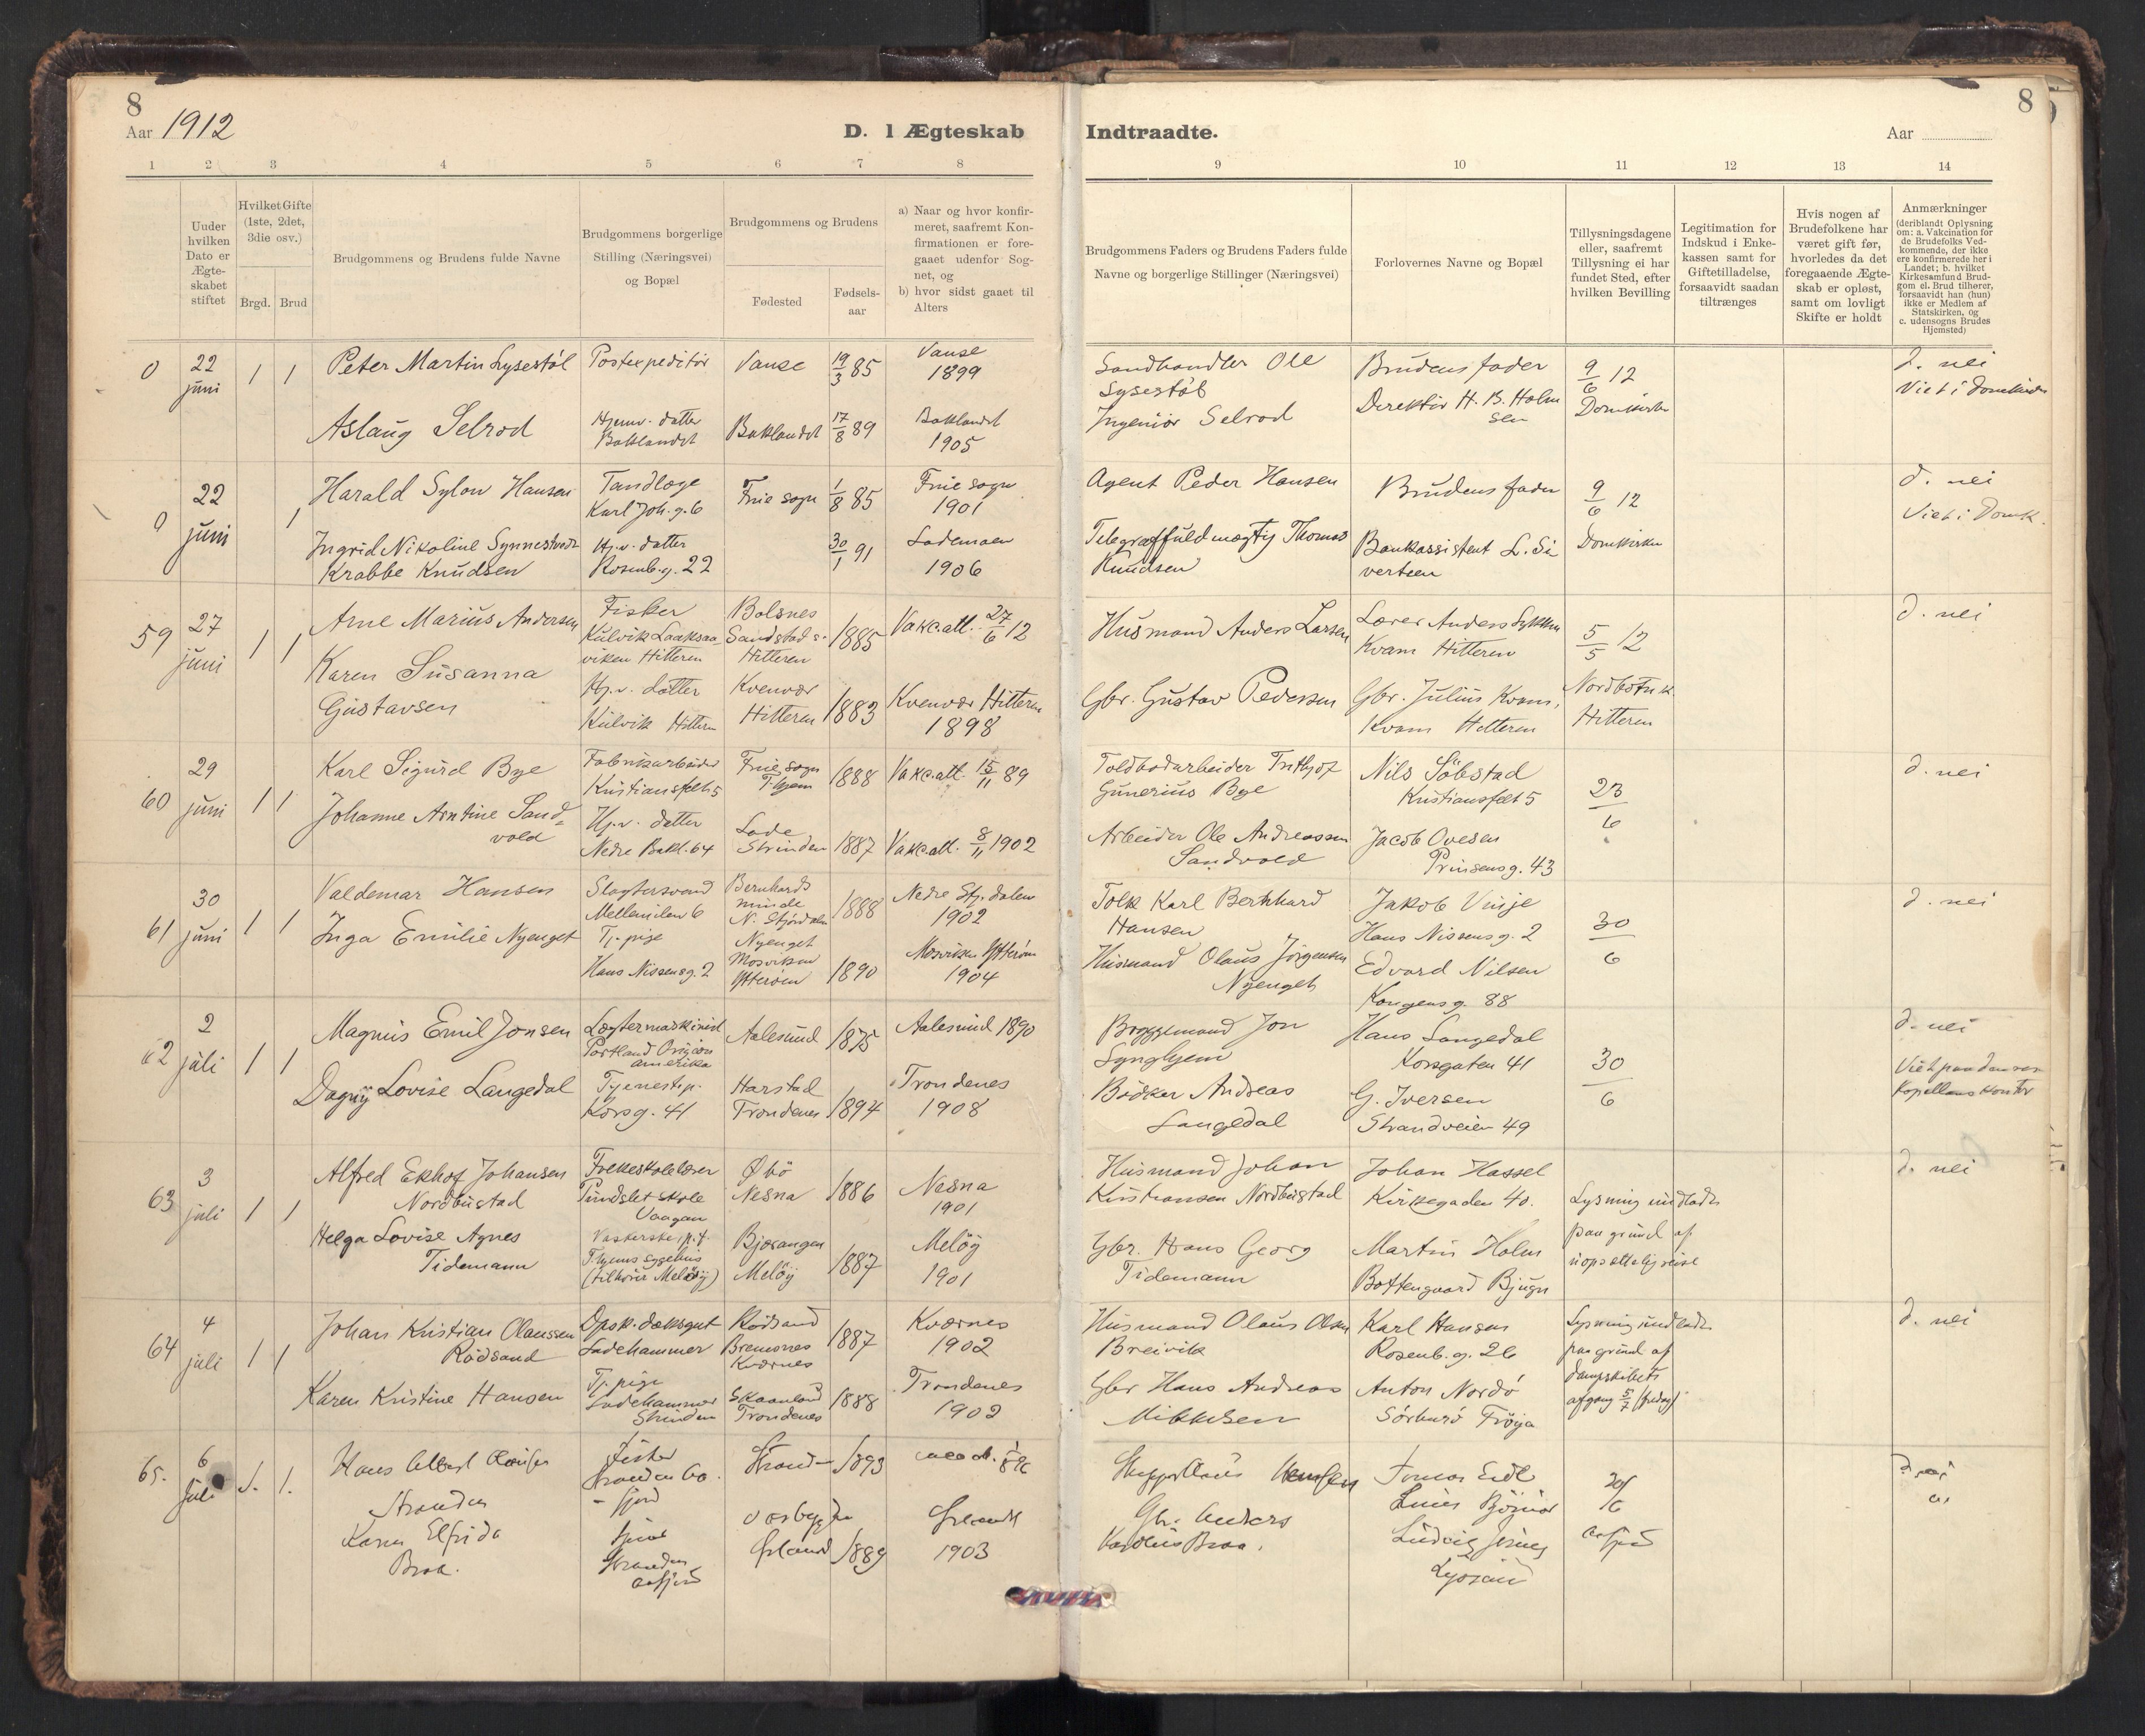 8
Aar 1912
D. I Ægteskab
Indtraadte.
Aar
8
1 2 3 4 5 6 7 8 9 10 11 12 13 14
Uuder hvilken Dato er Ægte-skabet stiftet
Hvilket Gifte (1ste, 2det, 3die osv.)
Brgd. Brud
Brudgommens og Brudens fulde Navne
Brudgommens borgerlige Stilling (Næringsvei) og Bopæl
Brudgommens og Brudens
Fødested
Fødsels-aar
a) Naar og hvor konfir-meret, saafremt Kon-firmationen er fore-gaaet udenfor Sog-net, og
b) hvor sidst gaaet til Alters
Brudgommens Faders og Brudens Faders fulde Navne og borgerlige Stillinger (Næringsvei)
Forlovernes Navne og Bopæl
Tillysningsdagene eller, saafremt Tillysning ei har fundet Sted, efter hvilken Bevilling
Legitimation for Indskud i Enke-kassen samt for Giftetilladelse, forsaavidt saadan tiltrænges
Hvis nogen af Brudefolkene har været gift før, hvorledes da det foregaaende Ægte-skab er opløst, samt om lovligt Skifte er holdt
Anmærkninger (deriblandt Oplysning om: a. Vakcination for de Brudefolks Ved-kommende, der ikke ere konfirmerede her i Landet; b. hvilket Kirkesamfund Brud-gom el. Brud tilhører, forsaavidt han (hun) ikke er Medlem af Statskirken, og c. udensogns Brudes Hjemsted)
0
22 juni
1 1
Peter Martin Lysestøl
Postexpeditør
Vanse
19/3 85
Vanse 1899
Sandhandler Ole
Lysestøl
Brudens fader
9/6 12
Domkirke
d. nei
Viet i Domkirke
Aslaug Selrod
Hjemv. datter
Baklandet
Baklandet
17/8 89
Baklandet
1905
Ingeniør Selrod
Direktør H. B. Holm
sen
0
22 juni
1
Harald Sylow Hansen
Tandlæge
Karl Joh. g. 6
Frue sogn
1/8 85
Frue sogn
1901
Agent Peder Hansen
Brudens fader
9/6 12
Domkirken
d. nei
Viet i Domk.
Ingrid Nikoline Synnestvedt
Krabbe Knudsen
Hj.v. datter
Rosenb.g. 22
30/1 91
Lademoen
1906
Telegraffuldmægtig Thomas
Knudsen
Bankassistent L. Si
vertsen
59
27 juni
1 1
Arne Marius Andersen
Fisker
Kulvik Laaksaa
viken Hitteren
Bolsnes
Sandstad s.
Hitteren
1885
Vakc.att. 27/6 12
Husmand Anders Larsen
Lærer Anders Lykken
Kvam Hitteren
5/5 12
d. nei
Karen Susanna
Gustavsen
Hj.v. datter
Kulvik Hitteren
Kvenvær
Hitteren
1883
Kvenvær Hitteren
1898
Gbr. Gustav Pedersen
Gbr. Julius Kvam,
Kvam Hitteren
Nordbotn k.
Hitteren
60
29 juni
1 1
Karl Sigurd Bye
Fabrikarbeider
Kristiansfelt 5
Frue sogn
Thjem
1888
Vakc.att. 15/11 89
Toldbodarbeider Frithjof
Gunerius Bye
Nils Søbstad
Kristiansfelt 5
23/6
d. nei
Johanne Arntine Sand=
vold
Hj.v. datter
Nedre Bakl. 64
Lade
Strinden
1887
Vakc.att. 8/11 1902
Arbeider Ole Andreassen
Sandvold
Jacob Ovesen
Prinsensg. 43
61
30 juni
1 1
Valdemar Hansen
Slagtersvend
Mellemilen 6
Bernhards
minde
N. Stjørdalen
1888
Nedre Stj.dalen
1902
Tolk Karl Bernhard
Hansen
Jakob Vinje
Hans Nissensg. 2
30/6
d. nei
Inga Emilie Nyenget
Tj.pige
Hans Nissensg. 2
Nyenget
Mosviken
Ytterøen
1890
Mosviken Ytterøen
1904
Husmand Olaus Jörgensen
Nyenget
Edvard Nilsen
Kongensg. 88
62
2 juli
1 1
Magnus Emil Jonsen
Lægtermaskinist
Portland Origon
Amerika
Aalesund
1875
Aalesund 1890
Bryggemand Jon
Lynghjem
Hans Langedal
Korsgaten 41
30/6
d. nei
Viet paa den res
Kapellans kontor
Dagny Lovise Langedal
Tjenestep.
Korsg. 41
Harstad
Trondenes
1894
Trondenes
1908
Bødker Andreas
Langedal
G. Iversen
Strandveien 49
63
3 juli
1 1
Alfred Ekhof Johansen
Nordbustad
Folkeskolelærer
Pundslet skole
Vaagan
Øbø
Nesna
1886
Nesna
1901
Husmand Johan
Kristiansen Nordbustad
Johan Hassel
Kirkegaden 40.
Lysning undlades
paa grund af
uopsættelig reise
d. nei
Helga Lovise Agnes
Tidemann
Vaskerske, p.t.
Thjems sygehus
(tilhører Meløy)
Bjærangen
Meløy
1887
Meløy
1901
Gbr. Hans Georg
Tidemann
Martin Holm
Bottengaard Bjugn
64
4 juli
1 1
Johan Kristian Olaussen
Rødsand
Opsk. dæksgut
Ladehammer
Rødsand
Bremsnes
Kværnes
1887
Kværnes
1902
Husmand Olaus Olsen
Breivik
Karl Hansen
Rosenb.g. 26
Lysning undlades
paa grund af
dampskibets
afgang 5/7 (fredag)
d. nei
Karen Kristine Hansen
Tj.pige
Ladehammer
Strinden
Skaanland
Trondenes
1888
Trondenes
1902
Gbr Hans Andreas
Mikkelsen
Anton Nordø
Sørburø Frøya
65.
6 Juli
1. 1.
Hans Albert
Stranden
Fisker
Stranden
fjord
Strand
1893
Karen Elfrida
Braa.
Ørland
1889
Ørland
1903
Gbr. Anders
Braa.
Ludvig
Lysøsund